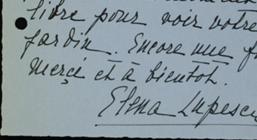 libre pour voir votre
jardin. Encore une f
merci et à bientot.
Elena Lupescu